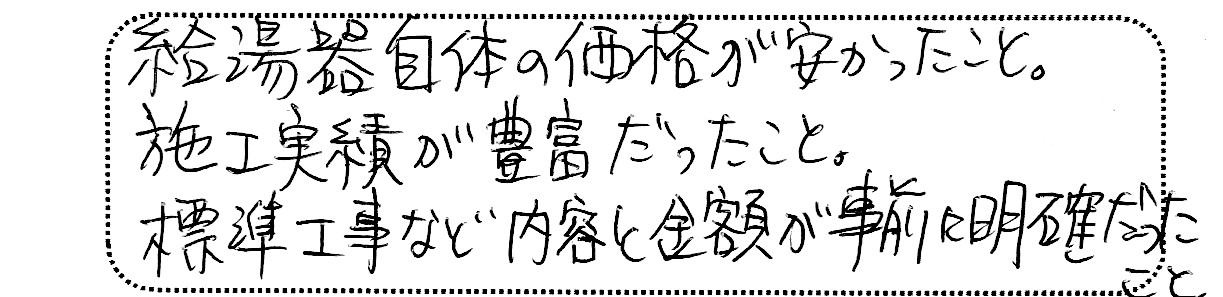 給湯器自体の価格が安かったこと。
施工実績が豊富だったこと。
標準工事など内容と金額が事前に明確だった
こと